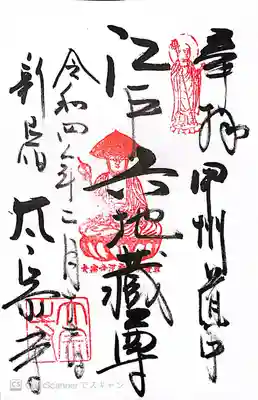 奉拝 甲州道中
江戸六地蔵尊
令和四年二月二十二日
新宿 太宗寺
CS CamScannerでスキャン